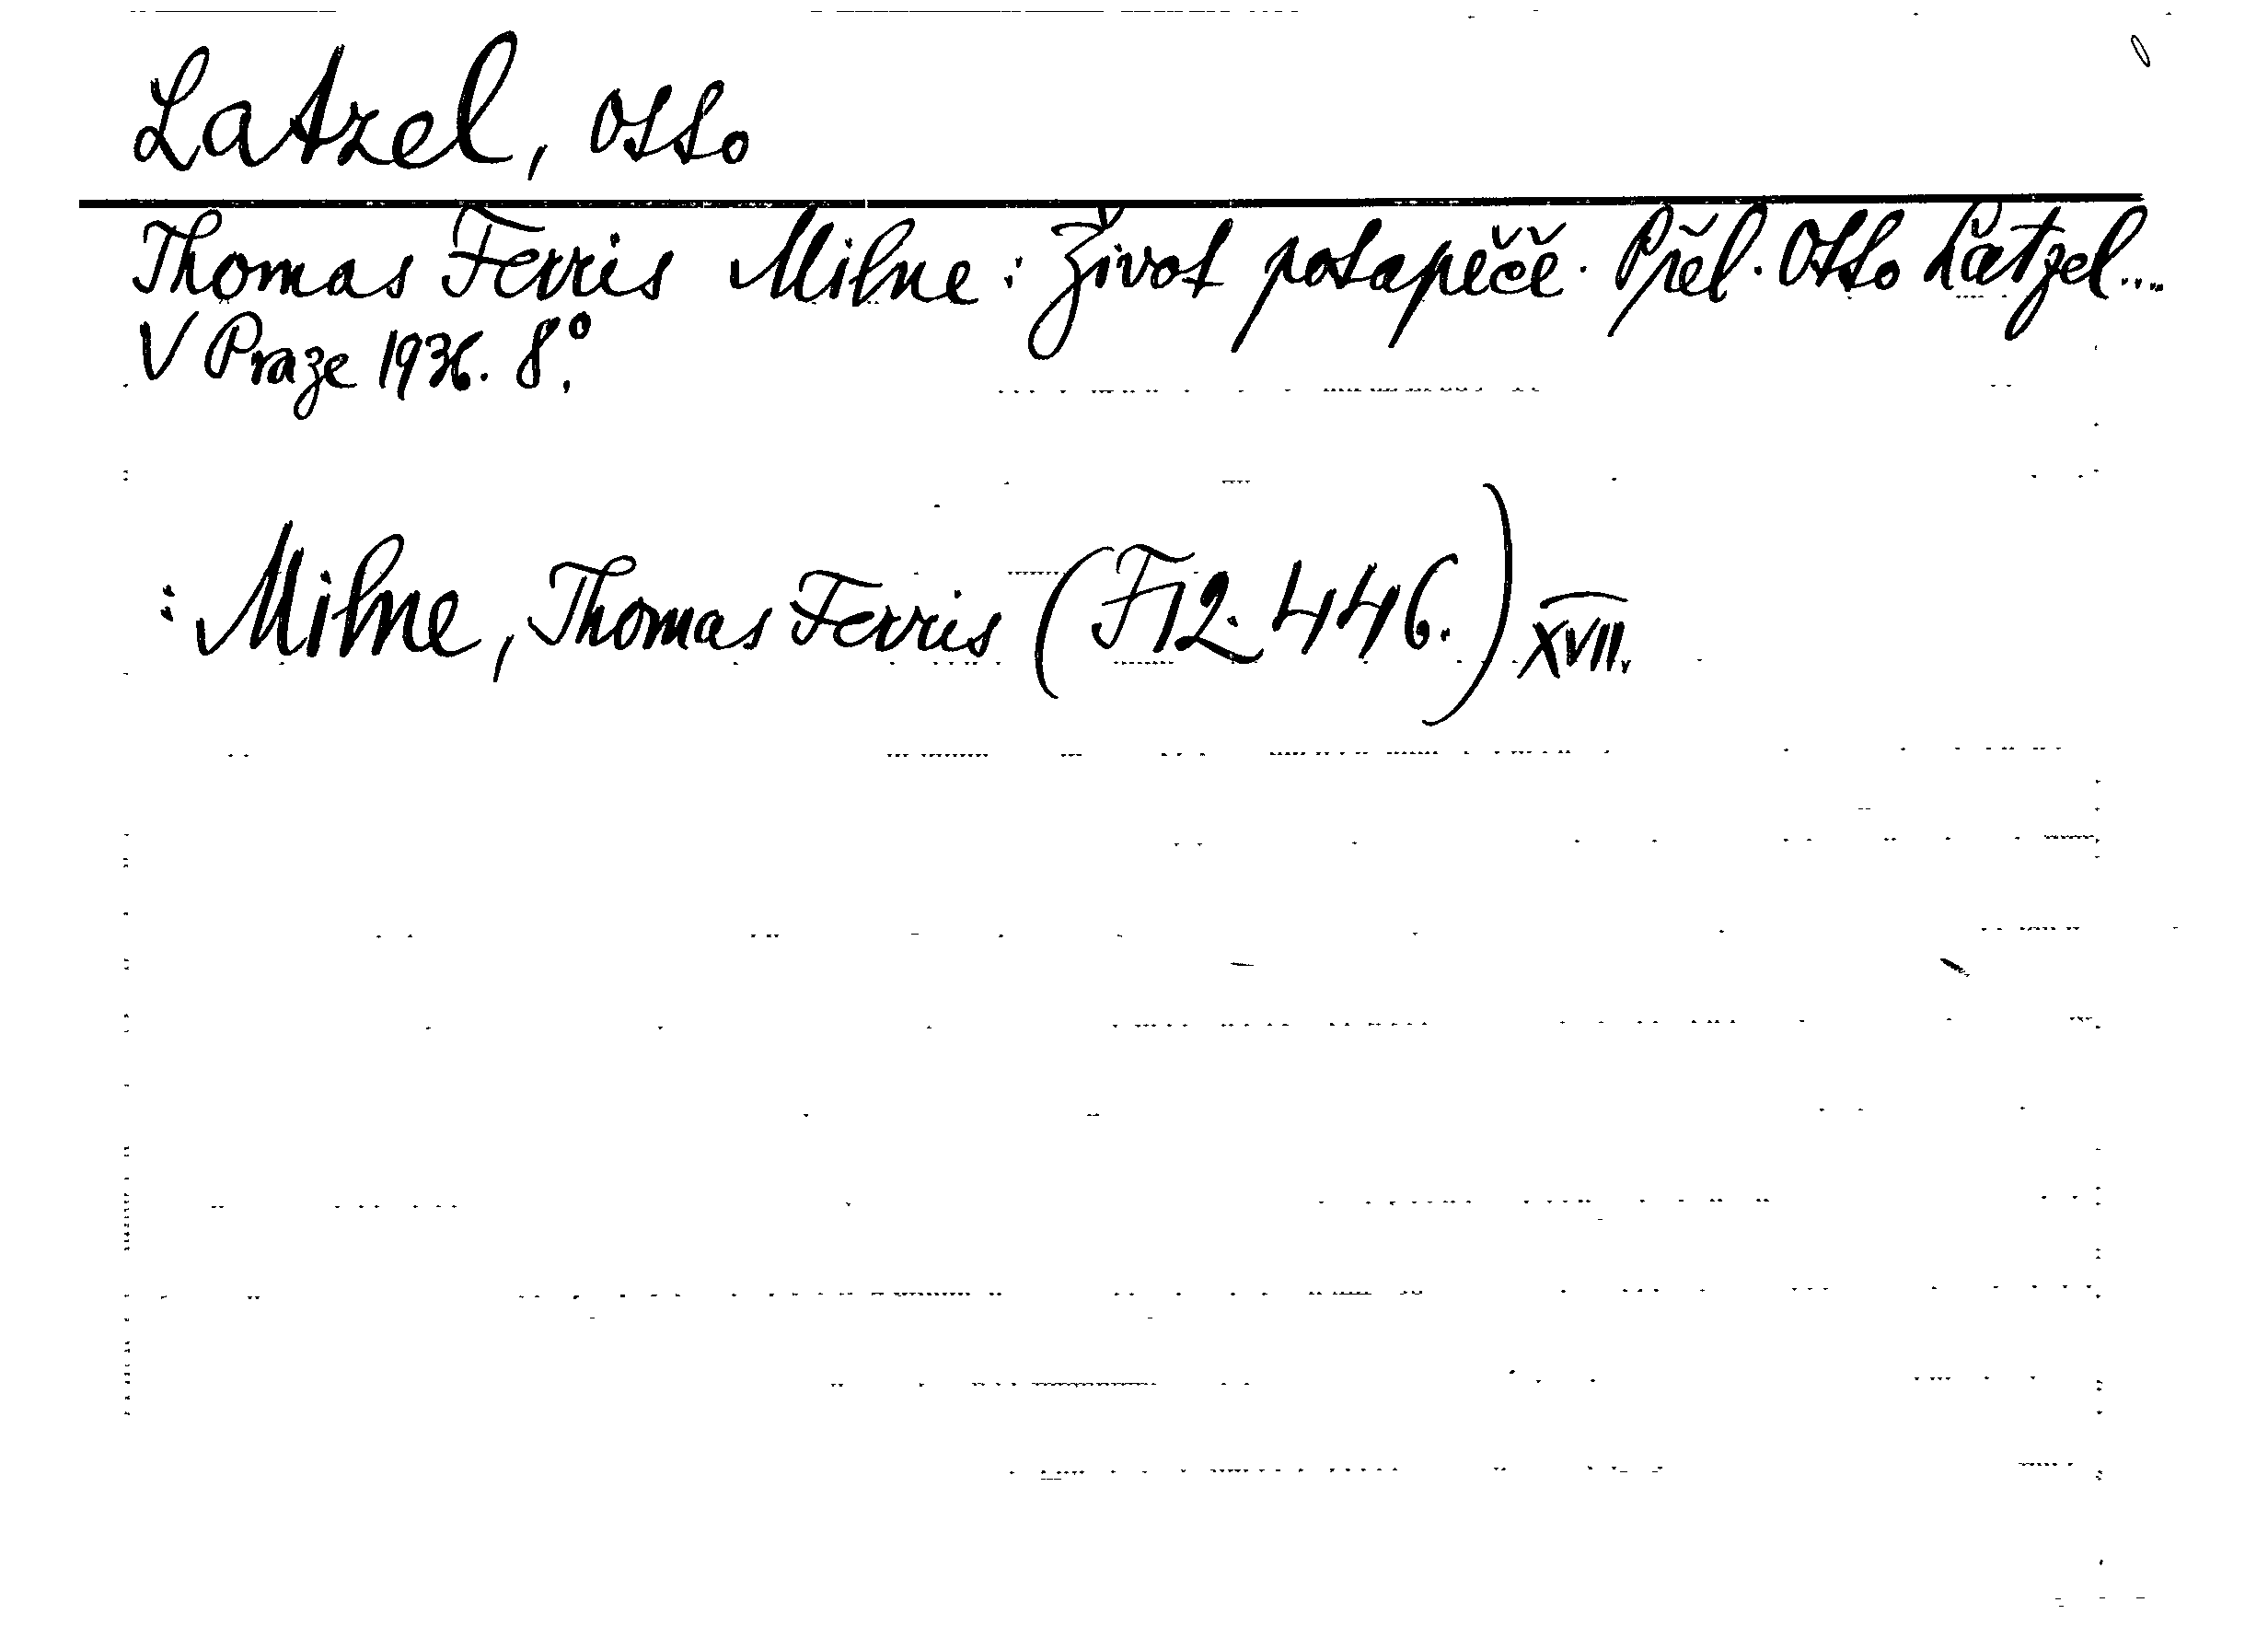 Latzel, Otto
Thomas Ferris Milne: Život potapěče. Přel. Otto Latzel...
V Praze 1936. 8°.
: Milne, Thomas Ferris (F12.446.) XVII.